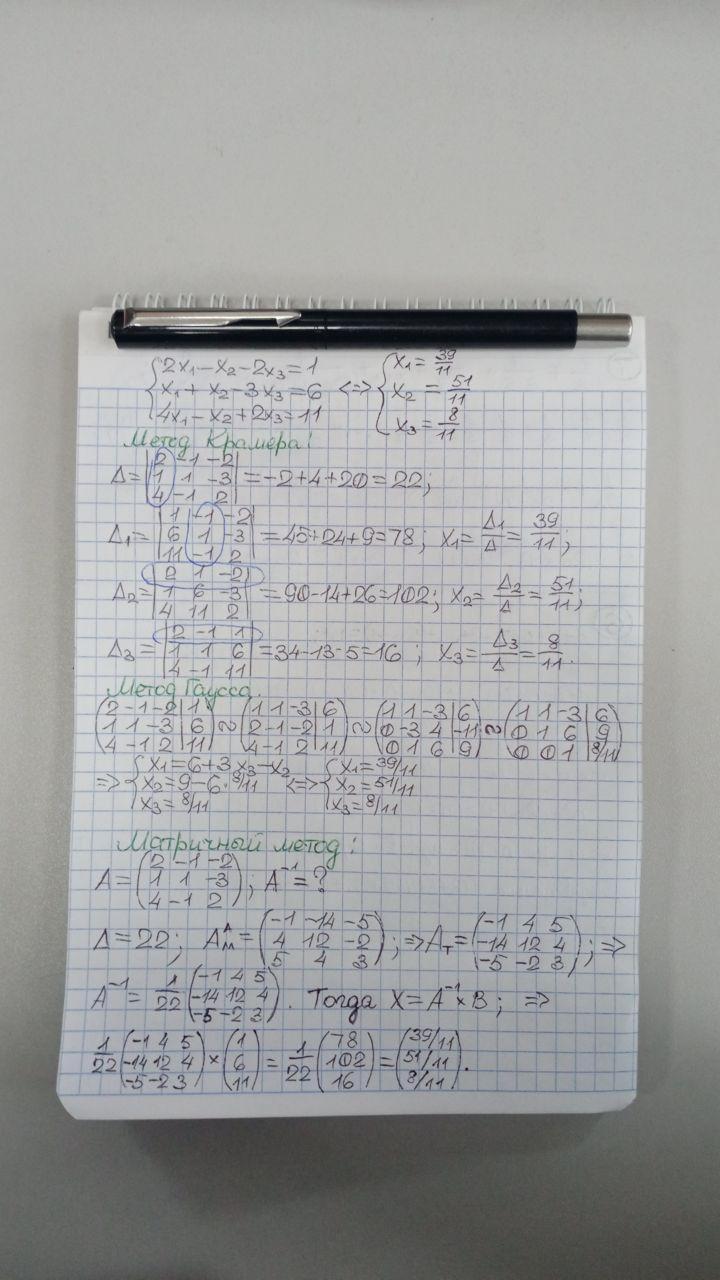 {2x₁-x₂-2x₃=1
{x₁+x₂-3x₃=6
{4x₁-x₂+2x₃=11
<=>
{x₁=39/11
{x₂=51/11
{x₃=8/11
Метод Крамера:
Δ=|2 -1 -2; 1 1 -3; 4 -1 2|=-2+4+20=22;
Δ₁=|1 -1 -2; 6 1 -3; 11 -1 2|=45+24+9=78; x₁=Δ₁/Δ=39/11;
Δ₂=|2 1 -2; 1 6 -3; 4 11 2|=90-14+26=102; x₂=Δ₂/Δ=51/11;
Δ₃=|2 -1 1; 1 1 6; 4 -1 11|=34-13-5=16; x₃=Δ₃/Δ=8/11.
Метод Гаусса.
(2 -1 -2|1; 1 1 -3|6; 4 -1 2|11)≈(1 1 -3|6; 2 -1 -2|1; 4 -1 2|11)≈(1 1 -3|6; 0 -3 4|-11; 0 1 6|9)≈(1 1 -3|6; 0 1 6|9; 0 0 1|8/11)
=>{x₁=6+3x₃-x₂; x₂=9-6·8/11; x₃=8/11 <=>{x₁=39/11; x₂=51/11; x₃=8/11
Матричный метод:
A=(2 -1 -2; 1 1 -3; 4 -1 2); A⁻¹=?
Δ=22; Aᴧₘ=(-1 -14 -5; 4 12 -2; 5 4 3); =>Aₜ=(-1 4 5; -14 12 4; -5 -2 3); =>
A⁻¹=1/22(-1 4 5; -14 12 4; -5 -2 3). Тогда X=A⁻¹×B; =>
1/22(-1 4 5; -14 12 4; -5 -2 3)×(1; 6; 11)=1/22(78; 102; 16)=(39/11; 51/11; 8/11).